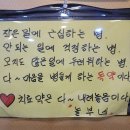 작은 일에 근심하는 병.
안되는 일에 걱정하는 병.
오지도 않은 일에 두려워하는 병.
다~ 마음을 병들게 하는 독약이다
치료약은 다~ 내려놓음이다